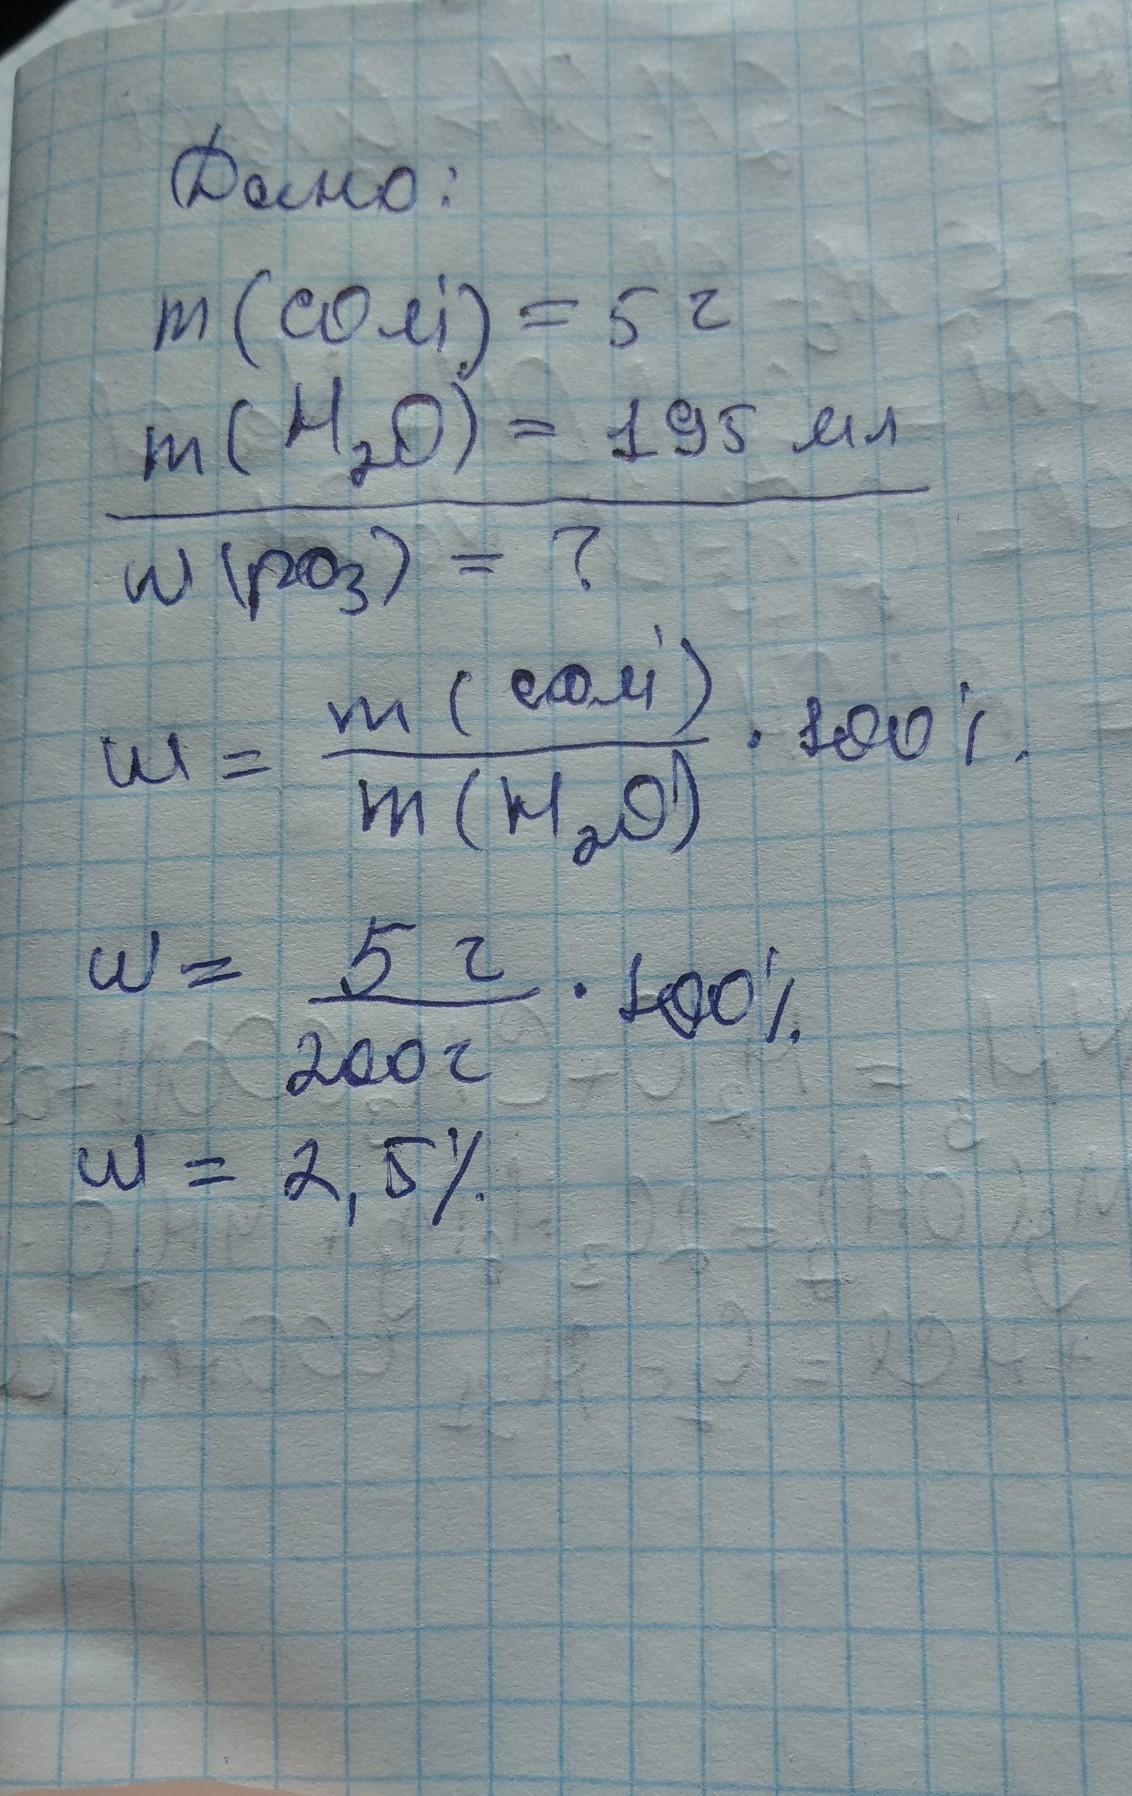 Дано:
m(солі) = 5 г
m(H₂O) = 195 мл
w(роз) = ?
w = m(солі) / m(H₂O) · 100%
w = 5 г / 200 г · 100%
w = 2,5%